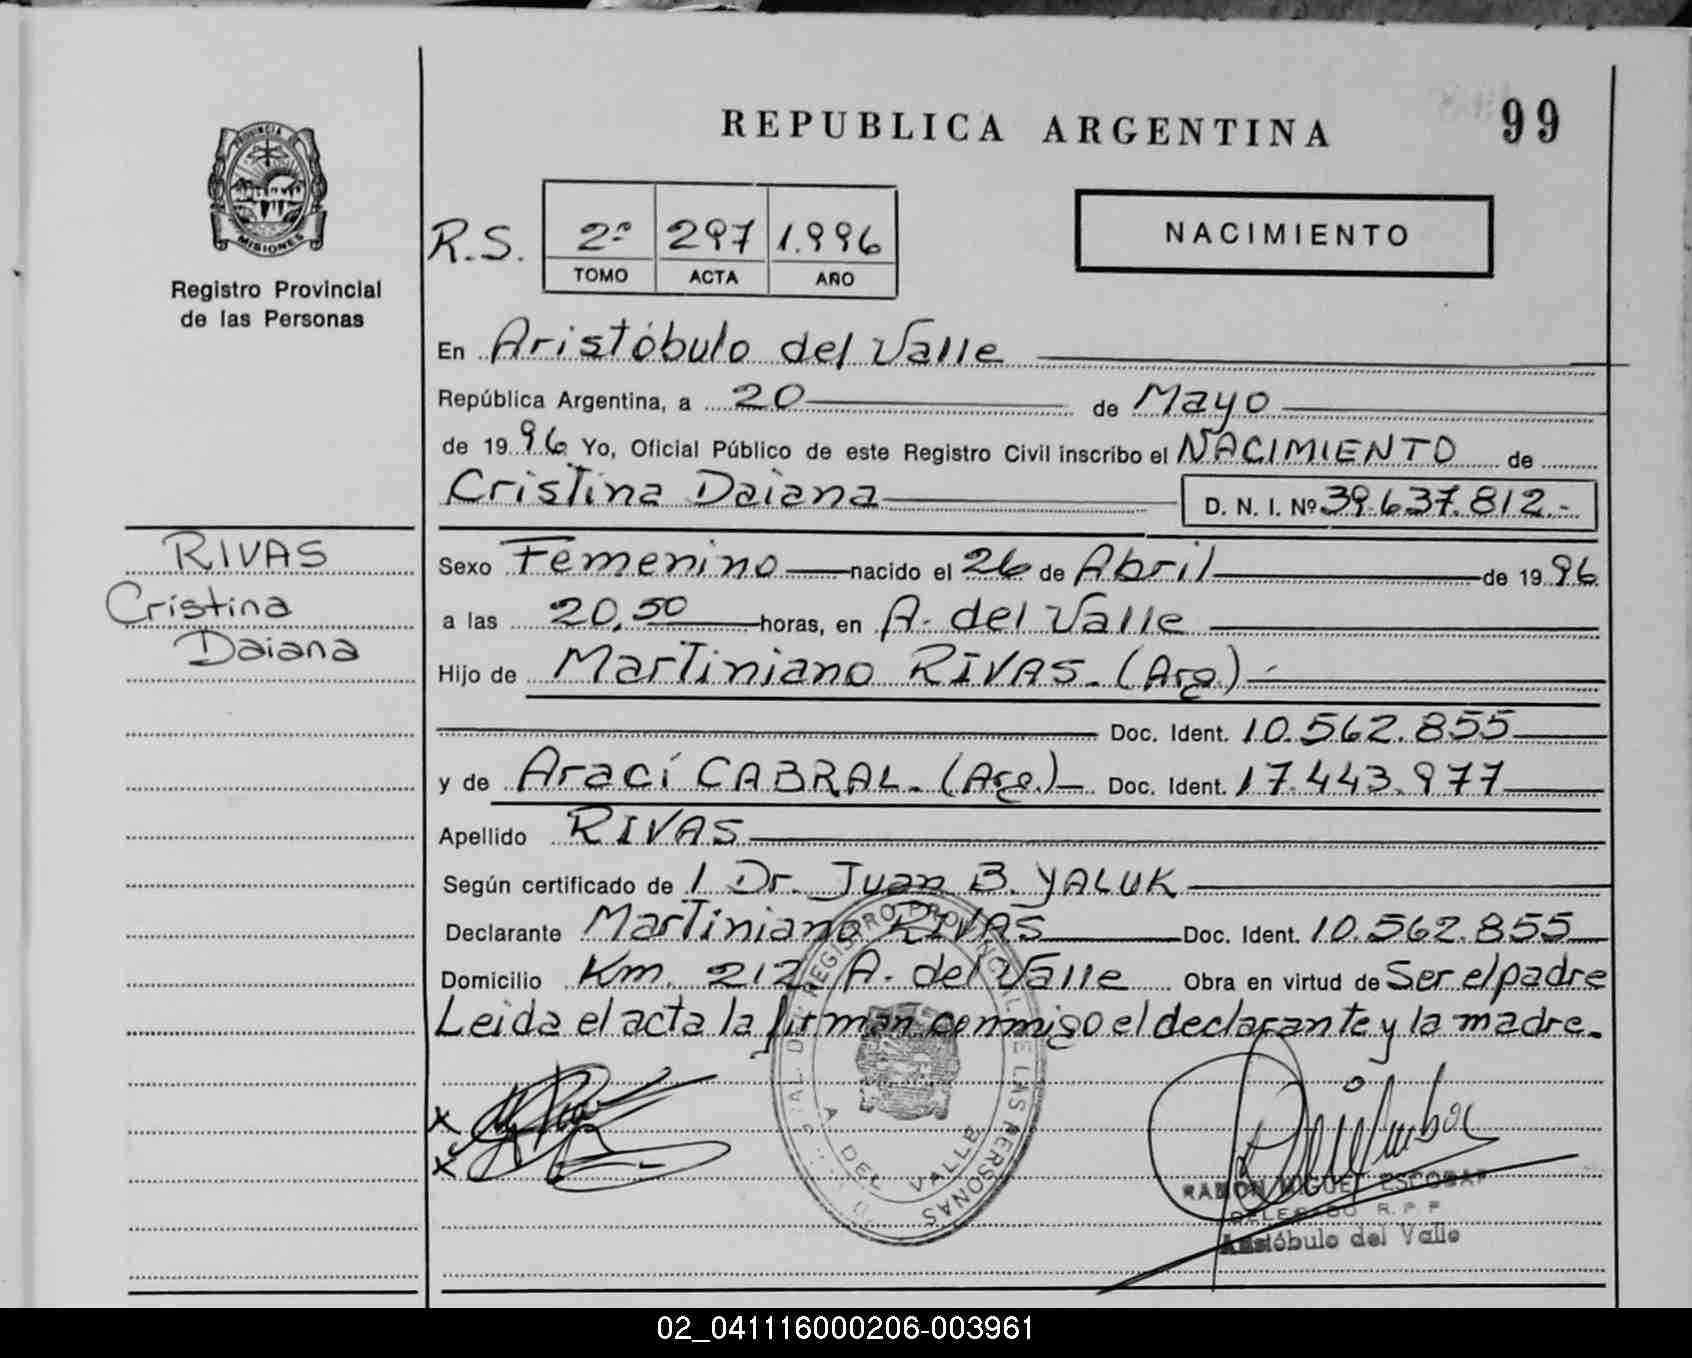 REPUBLICA ARGENTINA
99
PROVINCIA
MISIONES
Registro Provincial
de las Personas
R.S. 2º 297 1.996
TOMO ACTA AÑO
NACIMIENTO
En Aristóbulo del Valle
República Argentina, a 20 de Mayo
de 1996 Yo, Oficial Público de este Registro Civil inscribo el NACIMIENTO de
Cristina Daiana D. N. I. Nº 39.637.812.-
RIVAS
Cristina
Daiana
Sexo Femenino nacido el 26 de Abril de 1996
a las 20,50 horas, en A. del Valle
Hijo de Martiniano RIVAS. (Arg.)
Doc. Ident. 10.562.855
y de Arací CABRAL. (Arg.) Doc. Ident. 17.443.977
Apellido RIVAS
Según certificado de 1 Dr. Juan B. YALUK
Declarante Martiniano RIVAS Doc. Ident. 10.562.855
Domicilio Km. 212 A. del Valle Obra en virtud de Ser el padre
Leida el acta la firman conmigo el declarante y la madre.
x
x
REGISTRO PROVINCIAL DE LAS PERSONAS
A DEL VALLE
RAMON MIGUEL ESCOBAR
DELEGADO R. P. P
Aristóbulo del Valle
02_041116000206-003961